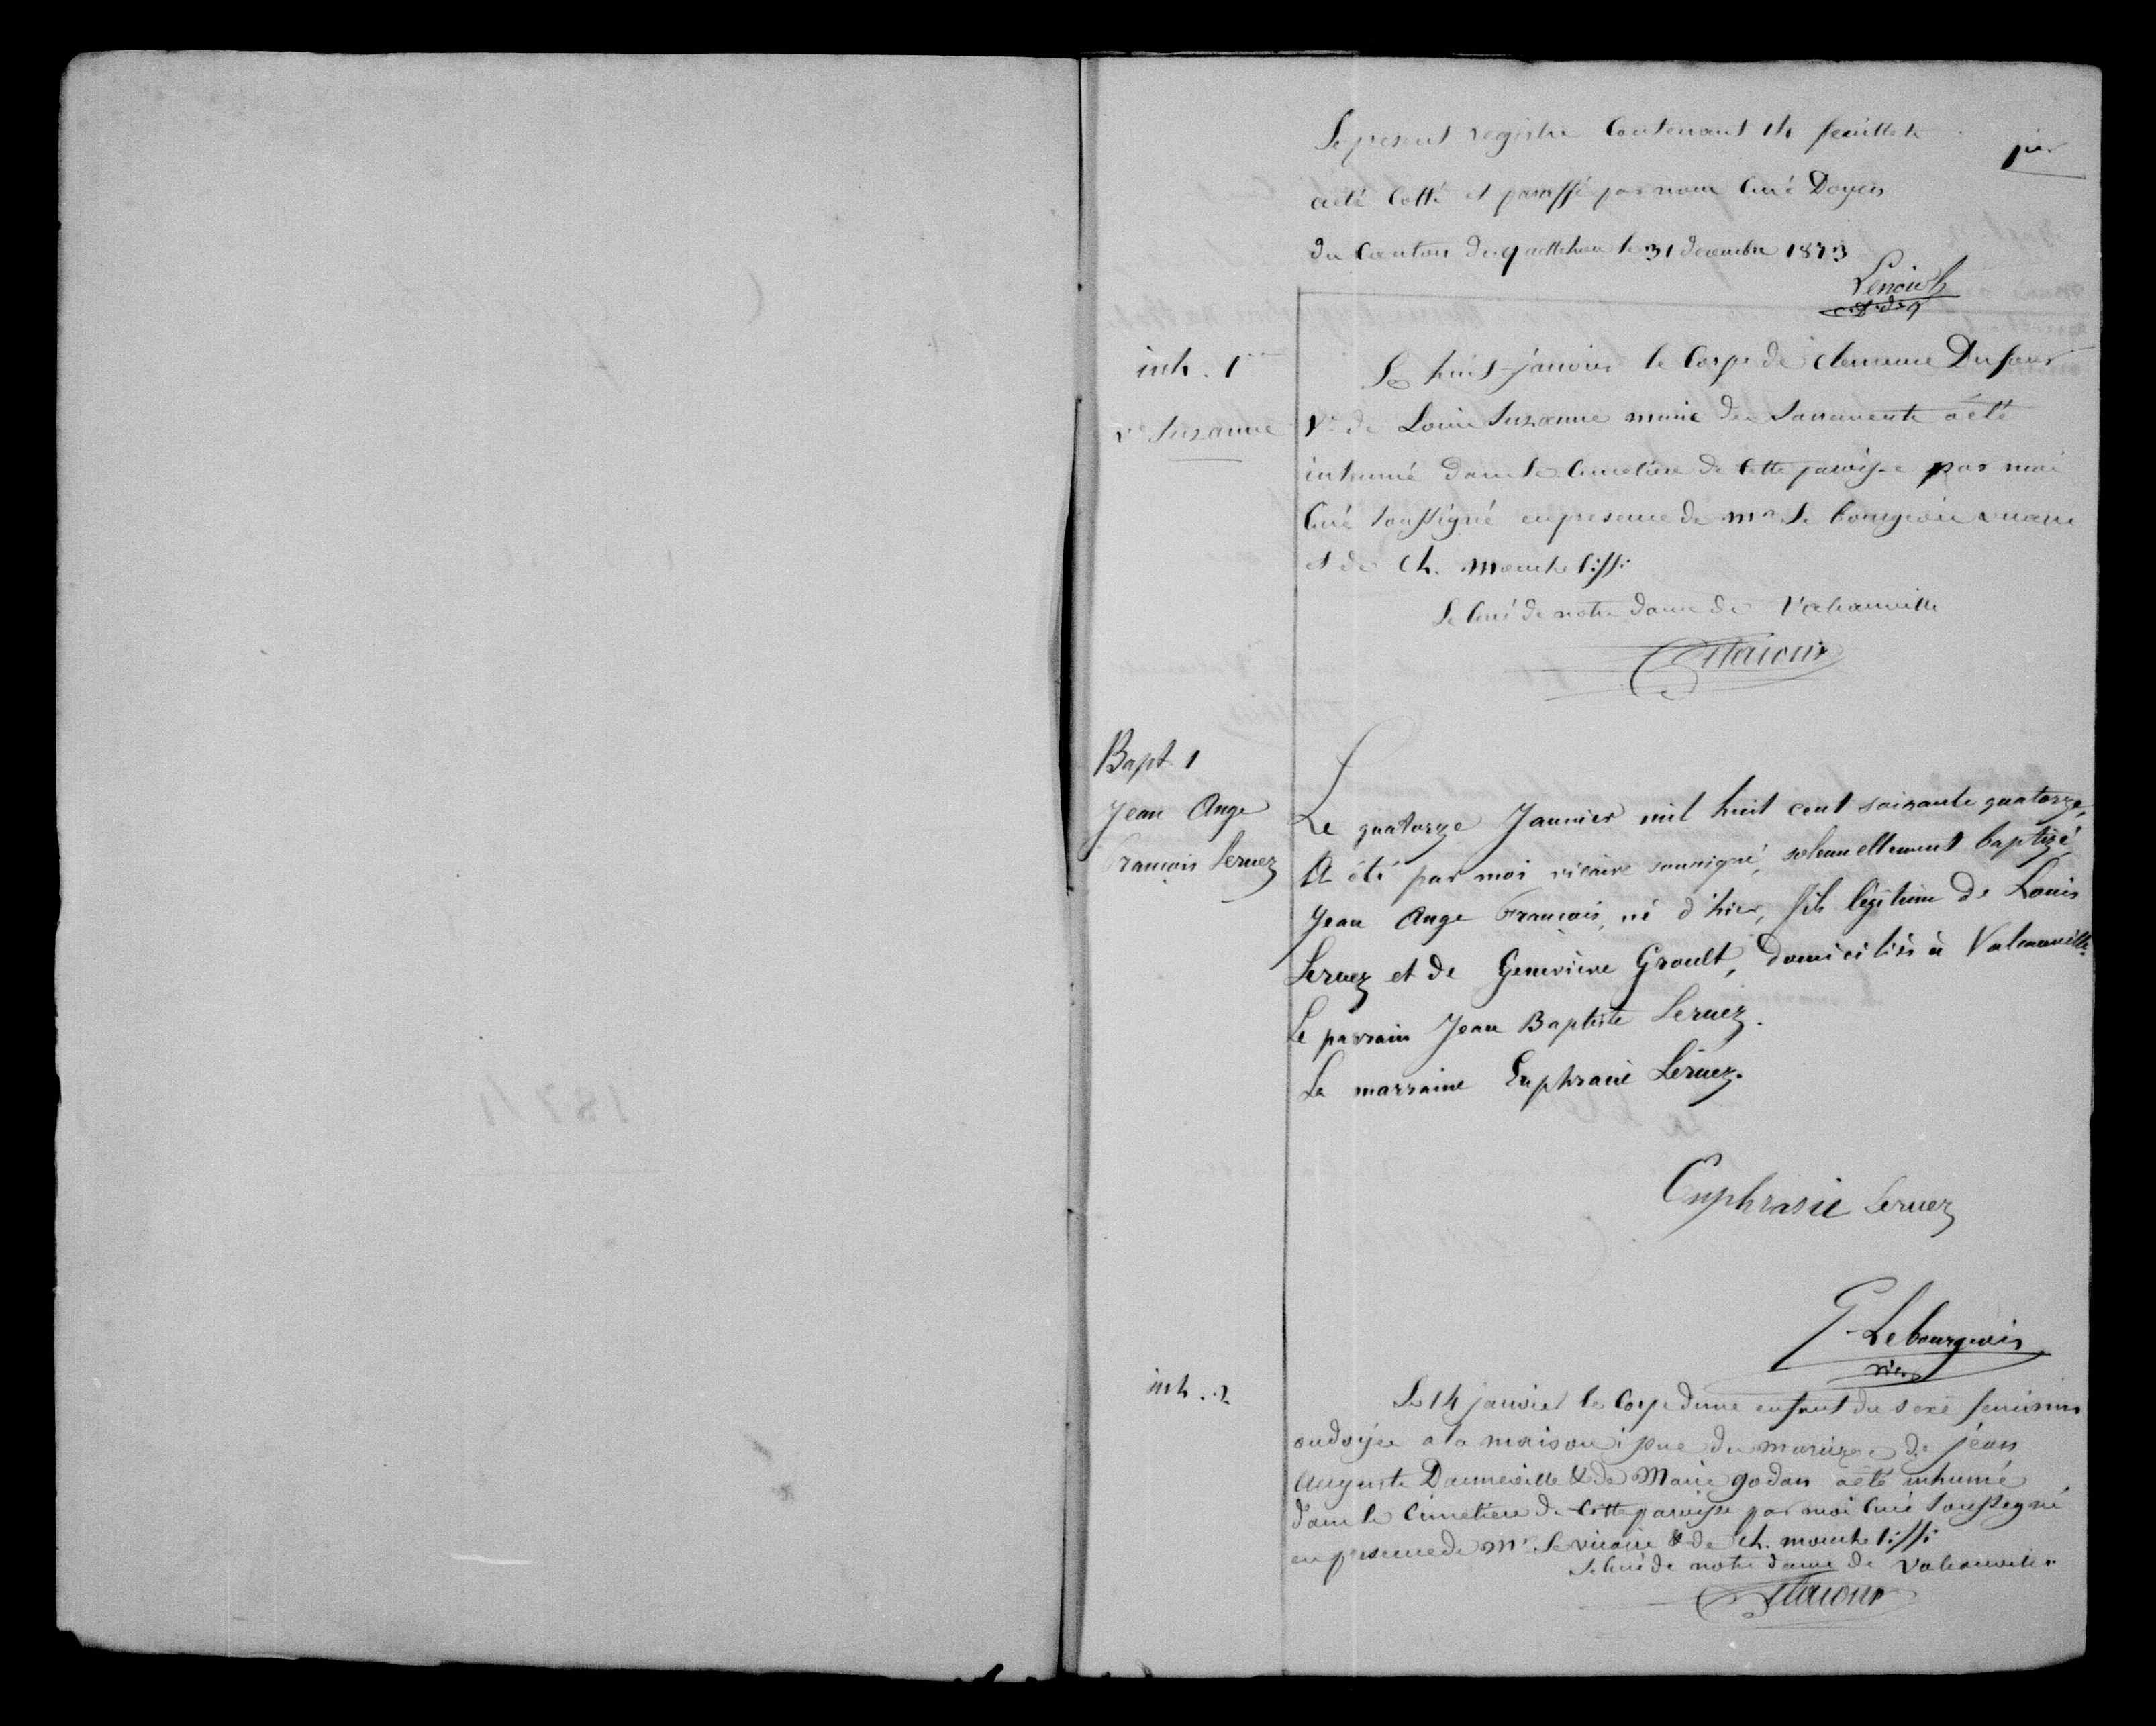 Le present registre Contenant 14 feuillets
1ier
a été Cotté et paraffé par nous Curé Doyen
du Canton de quettehou le 31 decembre 1873
Lenoir
c. d. de q
inh. 1
Ve Suzanne
Le huit janvier le Corps de clemence Dufour
Ve de Louis Suzanne munie des Sacrements a été
inhumé dans le Cimetière de Cette paroisse par moi
Curé Soussigné en presence de mr le bourgeois vicaire
et de Ch. mouchel
Le Curé de notre dame de Valcanville
Bapt. 1
Jean Ange
François Leruez
Le quatorze Janvier mil huit cent soixante quatorze,
A été par moi vicaire soussigné, solennellement baptizé,
Jean Ange François, né d'hier, fils légitime de Louis
Leruez et de Geneviève Groult, domiciliés à Valcanville.
Le parrain Jean Baptiste Leruez.
La marraine Euphrasie Leruez.
Euphrasie Leruez
G. Lebourgeois
vic.
inh. 2
Le 14 janvier le Corps d'une enfant du sexe feminin
ondoyée a la maison issue du mariage de jean
Auguste Danneville & de Marie godan a été inhumé
dans le Cimetiere de Cette paroisse par moi Curé Soussigné
en presence de mr le vicaire & de Ch. mouchel
Le Curé de notre dame de Valcanville
1874